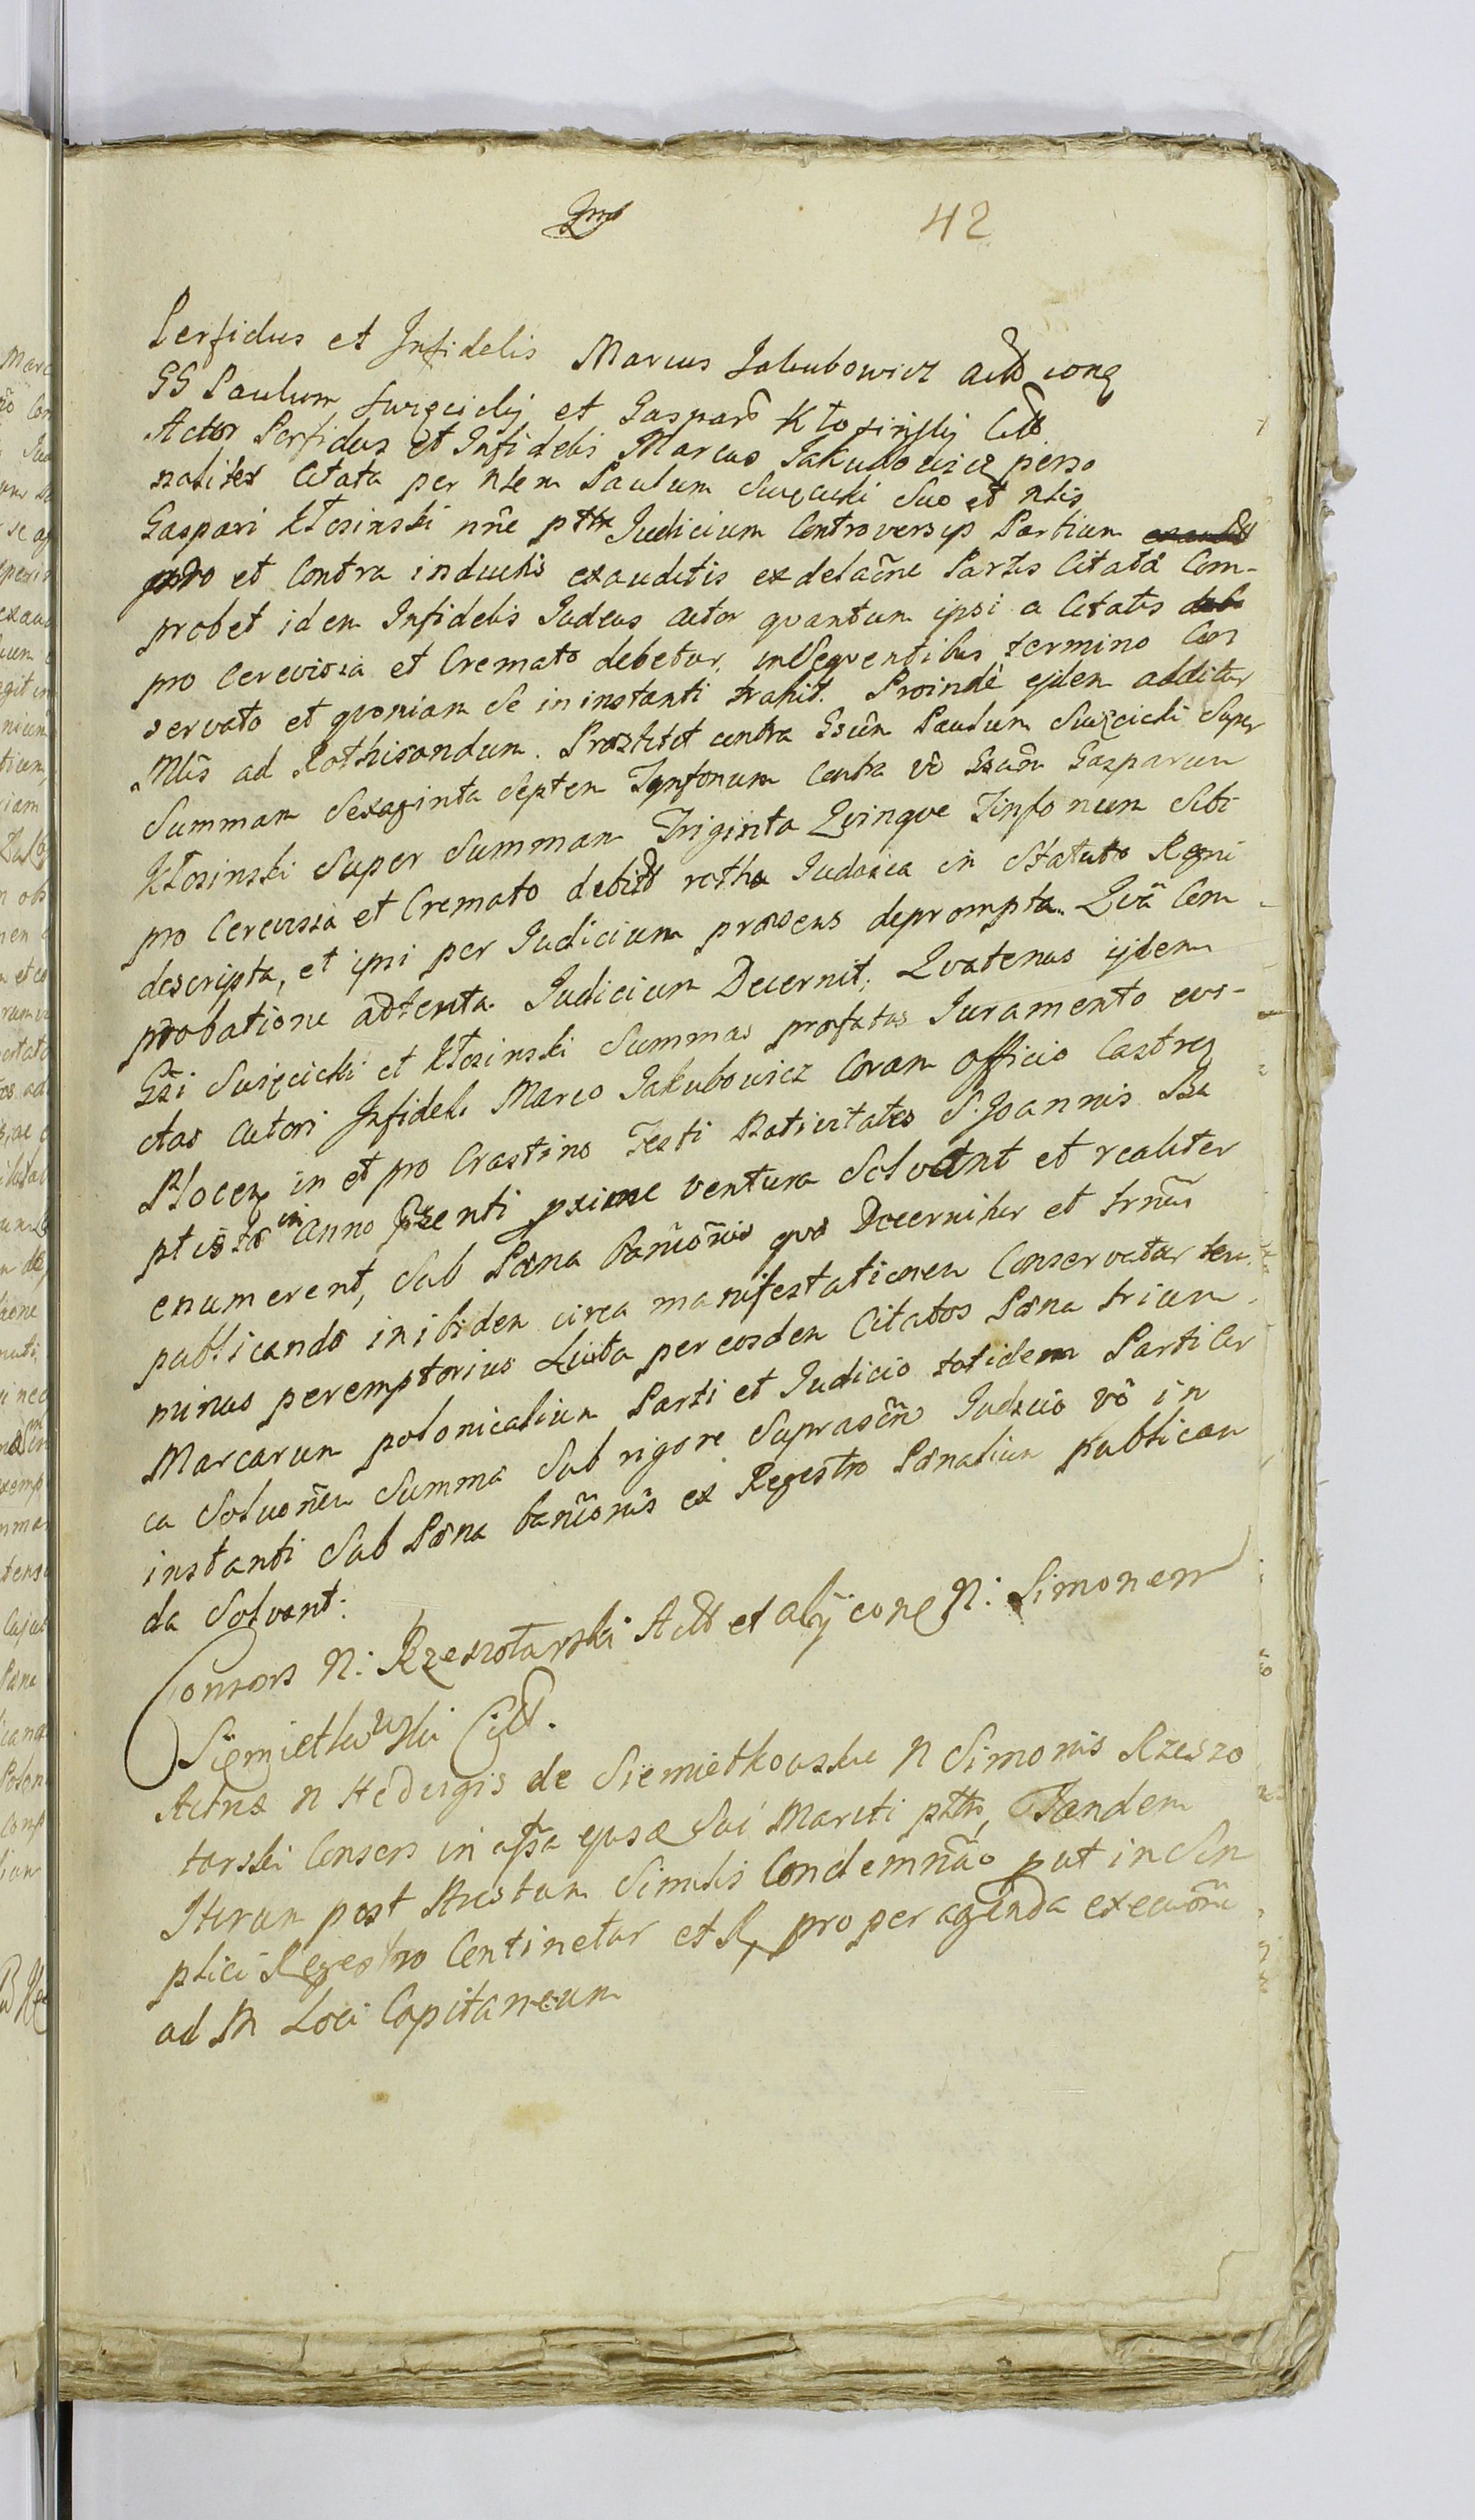 42
Perfidus et Infidelis Marcus Jakubowicz Actt conq
GG Paulum Swięcicky et Gaspars Kłosinsky Citt
Actor Perfidus et Infidelis Marcus Jakubowicz perso
naliter Citata per Nlem Paulum Swięcicki Suo et Nlis
Gaspari Kłosinski nñe pttr Judicium Controversys Partium
pro et Contra inductis exauditis ex delaõne Partis Citatæ Com-
probet idem Infidelis Judæus actor quantum ipsi a Citatis
pro Cerevisia et Cremato debetur, in Sequentibus termino Con
servato et quoniam Se in instanti trahit. Proindè ejdem additur
Mlis ad Rothisandum. Præstitit contra Gsum Paulum Swięcicki Super
Summam Sexaginta Septem Tynfonum Contra vô Gsum Gasparum
Kłosinski Super Summam Triginta Quinque Tinfonum Sibi
pro Cerevisia et Cremato debitt rotha Judaica in Statuto Regni
descripta, et ipsi per Judicium præsens deprompta. Quâ Com
probatione adtenta Judicium Decernit, Quatenus ijdem
Gsi Swięcicki et Kłosinski Summas præfatas Juramento evi-
ctas Actori Infideli Marco Jakubowicz Coram Officio Castren
Plocen in et pro Crastino Festi Nativitatis S. Joannis Ba
ptistæ in Anno præsenti proxime ventura Solvant et realiter
enumerent, Sub Pæna banniõnis quæ Decernitur et trnus
publicandæ inibidem circa manifestationem Conservatur ter
minus peremptorius Luita per eosdem Citatos Pæna trium
Marcarum polonicalium Parti et Judicio totidem Parti Cir
ca Soluõnem Summæ Sub rigore Suprascñ Judicio vô in
instanti Sub Pæna banniõnis ex Regestro Pænalium publican
da Solvant.
Consors N: Rzeszotarski Actt et alij conq N: Simonem
Siemietkowski Citt.
Actrix N Hedvigis de Siemietkowskie N Simonis Rzeszo
tarski Consors in assa ejusdẽ Sui Mariti pttr, Tandem
Iterum post Aristum Similis Condemnão put in Sim
plici Regestro Continetur et R, pro peragenda execuõne
ad M Loci Capitaneum